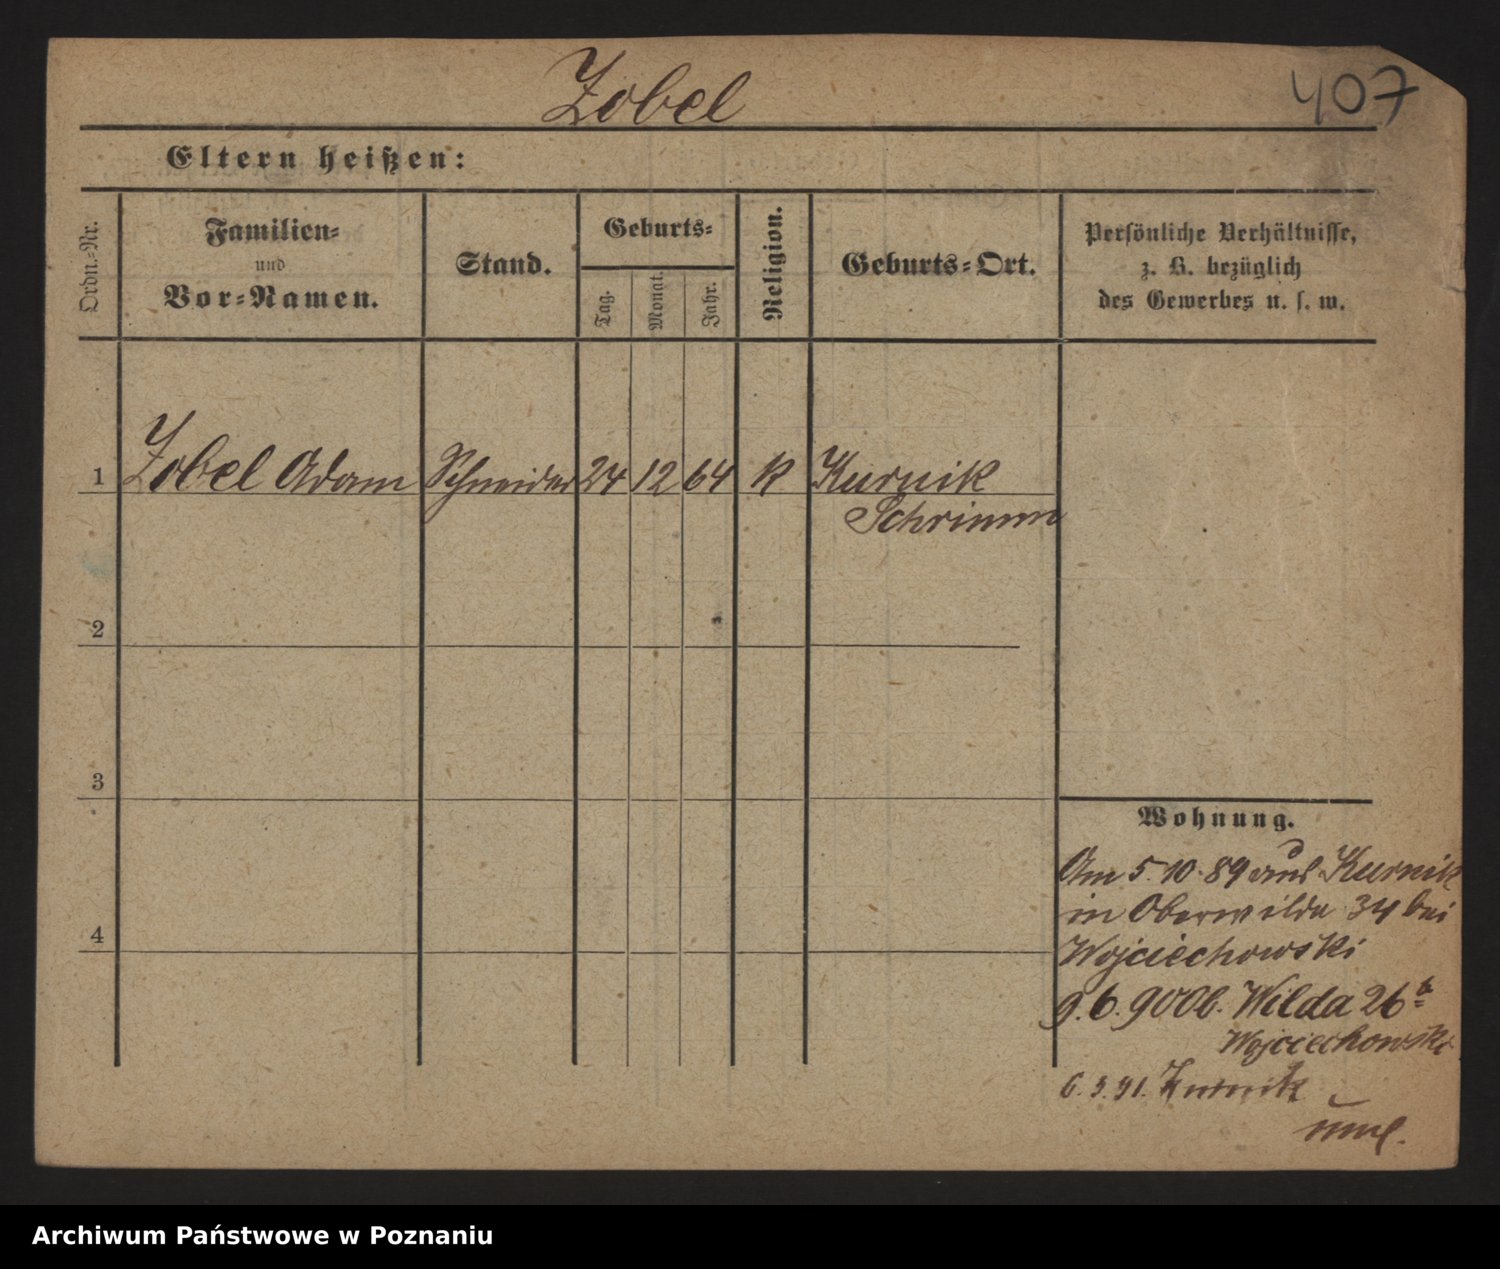 Zobel
407
Eltern heißen:
Ordn.-Nr.
Familien-
und
Vor-Namen.
Stand.
Geburts-
Tag.
Monat.
Jahr.
Religion.
Geburts-Ort.
Persönliche Verhältnisse,
z. B. bezüglich
des Gewerbes u. s. w.
1 Zobel Adam Schneider 24 12 64 k Kurnik
Schrimm
2
3
4
Wohnung.
Am 5.10.89 aus Kurnik
in Oberwilda 34 bei
Wojciechowski
9.6.90 Ob. Wilda 26a
Wojciechowski
6.3.91. Kurnik
Archiwum Państwowe w Poznaniu